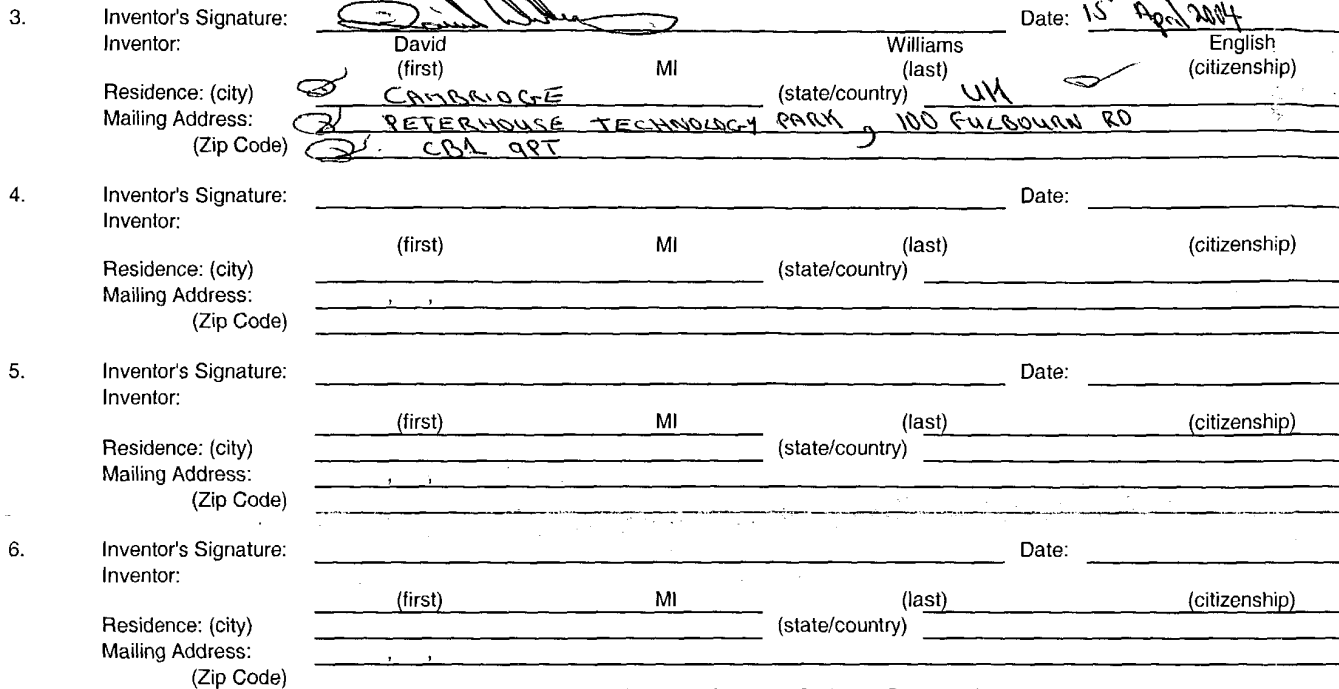 3. Inventor's Signature: David Williams Date: 15 April 2004
Inventor: David Williams English
(first) MI (last) (citizenship)
Residence: (city) CAMBRIDGE (state/country) UK
Mailing Address: PETERHOUSE TECHNOLOGY PARK, 100 FULBOURN RD
(Zip Code) CB1 9PT
4. Inventor's Signature: Date:
Inventor:
(first) MI (last) (citizenship)
Residence: (city) (state/country)
Mailing Address: , ,
(Zip Code)
5. Inventor's Signature: Date:
Inventor:
(first) MI (last) (citizenship)
Residence: (city) (state/country)
Mailing Address: , ,
(Zip Code)
6. Inventor's Signature: Date:
Inventor:
(first) MI (last) (citizenship)
Residence: (city) (state/country)
Mailing Address: , ,
(Zip Code)